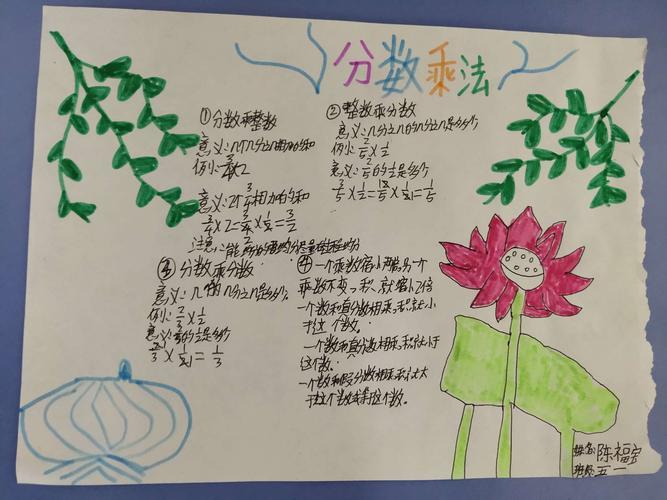 分数乘法
①分数乘整数
意义:几个几分之几相加的和
例:3/4×2
意义:2个3/4相加的和
3/4×2=3/4×2/1=3/2
注意:能约分的要约分
②整数乘分数
意义:几分之几的几分之几是多少
例:2/5×1/2
意义:2/5的1/2是多少
③分数乘分数
意义:几的几分之几是多少
例:2/3×1/2
意义:的是多少
2/3×1/2=1/3
④一个乘数缩小,另一个
乘数不变,积就缩小
一个数和真分数相乘,积就小
于这个数。
一个数和真分数相乘,积就小于
这个数。
一个数和假分数相乘,积大
于这个数或等于这个数。
姓名:陈福宝
班级:五一